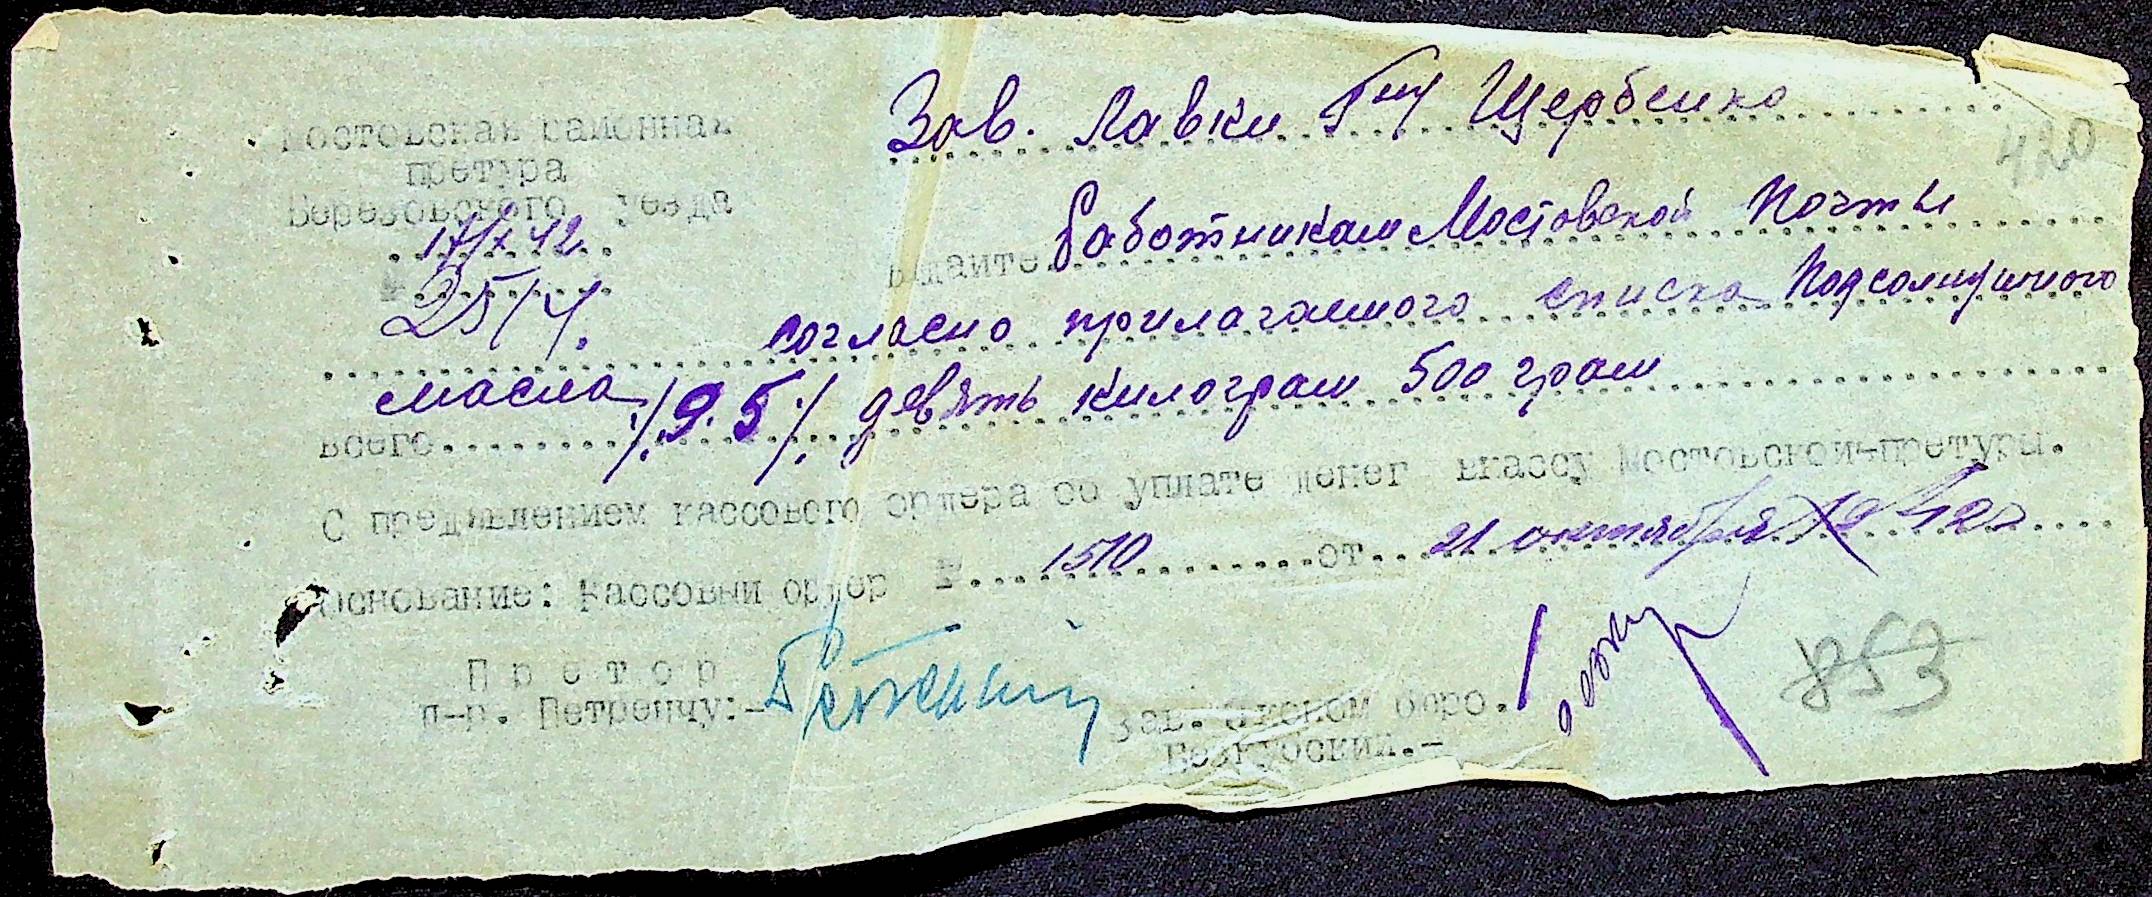 Зав. Лавки Гну Щербенко
420
Мостовская районная
претура
Березовского уезда
17/X 42.
№ 25/4.
выдайте Работникам Мостовской Почты
согласно прилагаемого списка Подсолнушного
масла
всего /9.5/ девять килограм 500 грам
С предявлением кассового ордера об уплате денег вкассу Мостовской-претуры.
Основание: Кассовый ордер № 1510 от 21 октября 42г
Претор
п-р. Петренчу:-
Зав. Эконом бюро.
Безкубский.-
853